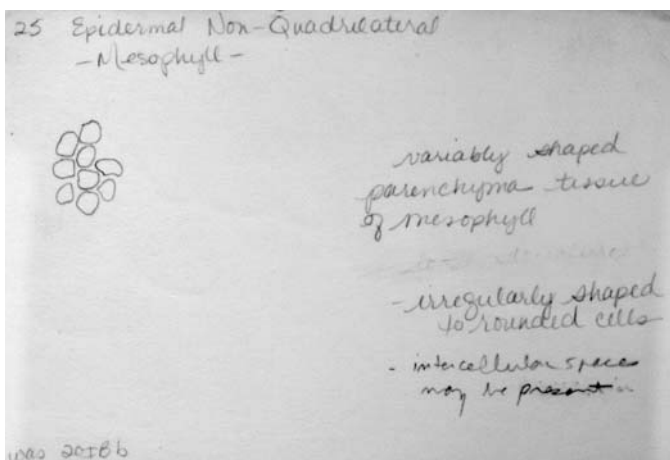 25 Epidermal Non-Quadrilateral
- Mesophyll -
variably shaped
parenchyma tissue
of mesophyll
- irregularly shaped
to rounded cells
- intercellular spaces
may be present
was 20IBb